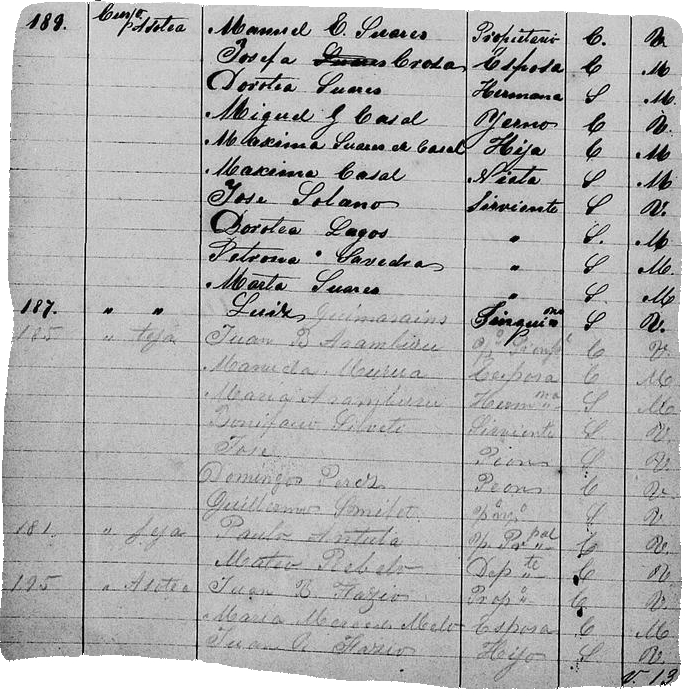 189. Cuerpo Manuel E. Suares Propietario C. V.
p. Asotea Josefa Suares Crosa Esposa C M
Dorotea Suares Hermana S M.
Miguel G Casal Yerno C V.
Maxima Suares de Casal Hija C M
Maxima Casal Nieta S M
Jose Solano Sirviente S V.
Dorotea Lagos " S. M
Petrona Savedra " S M.
Marta Suares " S M
187. " " Luiz Guimarains Inquino S V.
185 " teja Juan B Aramburu C V.
Manuela Esposa C M
Maria Aramburu Hermna S M
Bonifacio Silveti Sirviente S V.
Jose Pion S V.
Domingos Perez Peon C V.
Guillermo S V
181. " teja Paulo Antula C V.
Mateo Rebelo Depte C V
195 " Asotea Juan B Fazio Propo C V.
Maria Mercedes Melo Esposa C M
Juan B Fazio Hijo S V.
V. 13